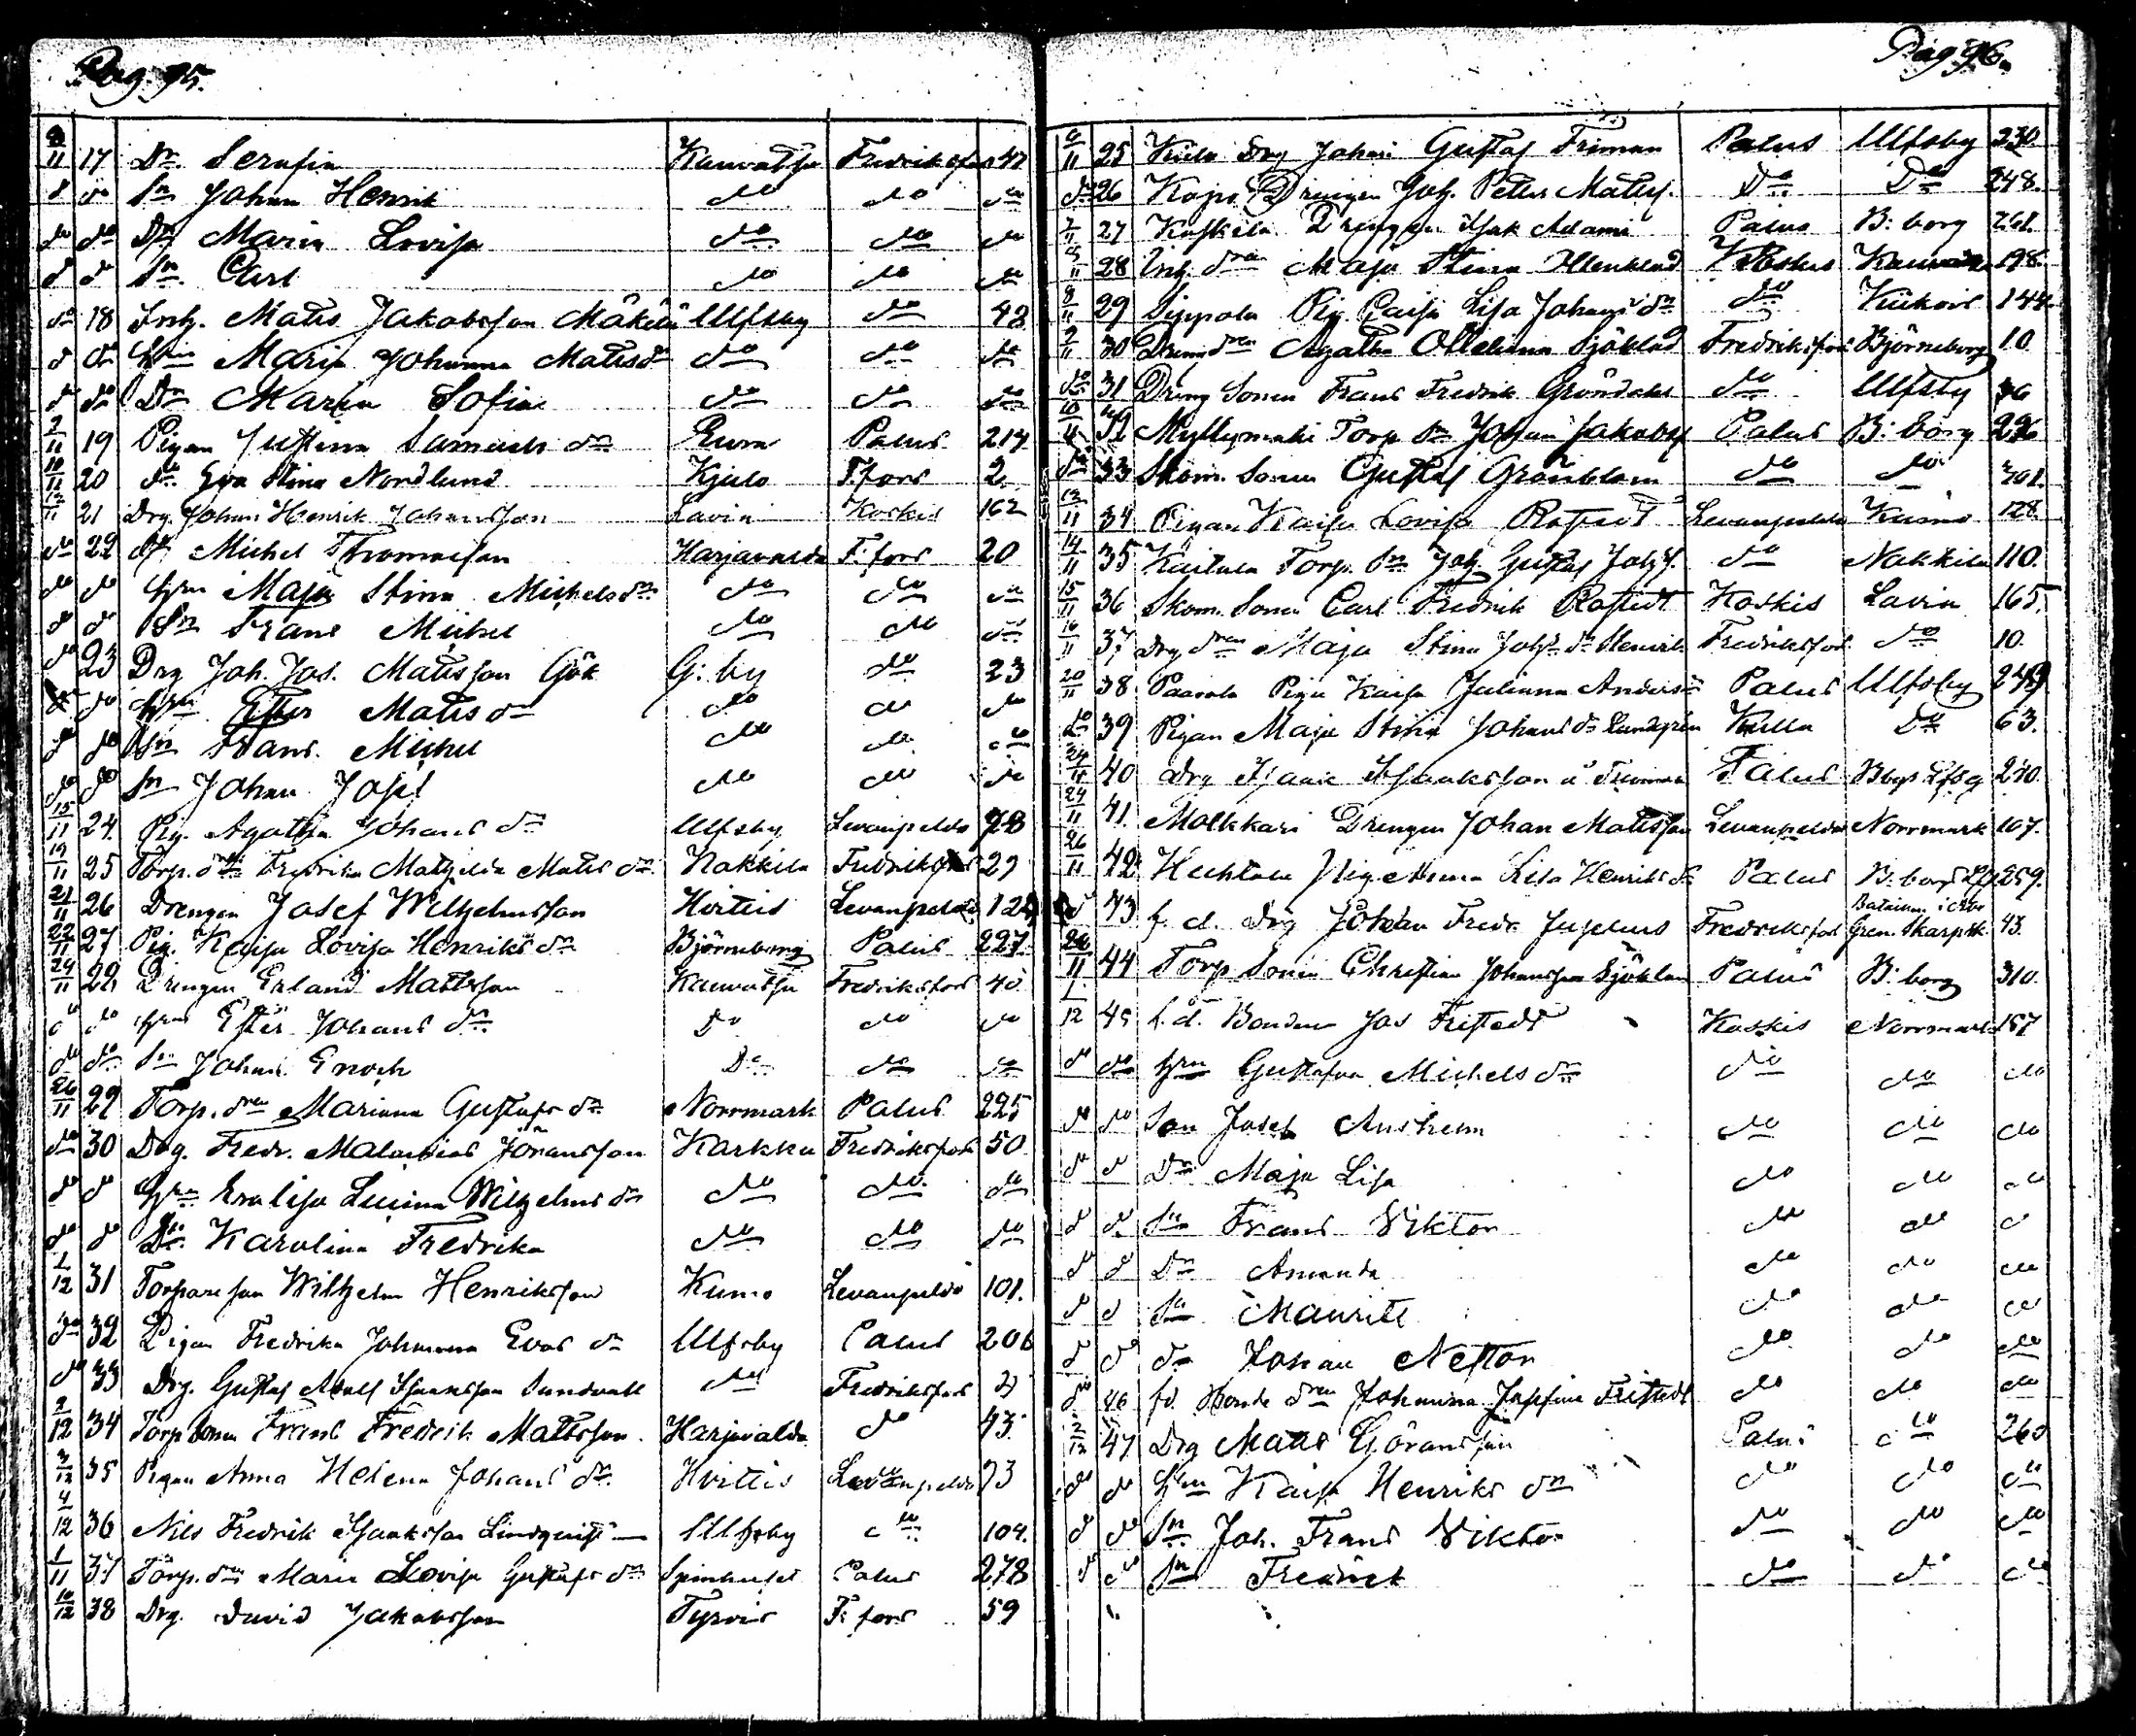 Pag. 95.
8/11 17 Dr Serafia Kauvatsa Fredriksfors 47
d do Sn Johan Henrik do do do
do do Dr Maria Lovisa do do do
d d Sn Carl do do do
do 18 Inh. Matts Jakobsson Mäkiä Ulfsby do 48
d do Hn Maria Johanna Matsdr do do do
d do Dr Maria Sofia do do do
2/11 19 Pigan Justina Samuels dr Eura Palus 214
10/11 20 do Eva Stina Nordlund Kjulo F:fors 2
12/11 21 Drg. Johan Henrik Johansson Lavia Koskis 162
do 22 d Michel Thomasson Harjavalda F:fors 20
do do Hn Maja Stina Michelsdr do do do
d d Sn Frans Michel do do do
do 23 Drg Joh. Jos. Matsson Gök G:by do 23
d do Hn Ester Matsdr do do do
d do Sn Frans Michel do do do
do do Sn Johan Josef do do do
15/11 24 Pig. Agatha Johans dr Ulfsby Levanpeldo 98
19/11 25 Torp. drn Fredrika Mathilda Matts dr Nakkila Fredriksfors 27
21/11 26 Drengen Josef Wilhelmsson Hvittis Levanpeldo 124
22/11 27 Pig. Kaisa Lovisa Henriks dr Björneborg Palus 227
24/11 28 Drengen Erland Mattsson Kauvatsa Fredriksfors 40
do do Hn Ester Johans dr Do do do
do do Sn Johan Enoch Do do do
26/11 29 Torp. drn Mariana Gustafs dr Norrmark Palus 225
do 30 Drg. Fredr. Malakias Jöransson Karkku Fredriksfors 50
d d Hn Eva Lisa Lucina Wilhelms dr do do do
do d Dr. Karolina Fredrika do do do
1/12 31 Torpareson Wilhelm Henriksson Kumo Levanpeldo 101.
do 32 Pigan Fredrika Johanna Evas dr Ulfsby Palus 206
do 33 Drg. Gustaf Adolf Isaksson Sundvall do Fredriksfors 2
2/12 34 Torp Sonen Frans Fredrik Mattsson Harjavalda do 43
3/12 35 Pigan Anna Helena Johans dr Hvittis Levanpeldo 73
4/12 36 Nils Fredrik Isaksson Lindqvist Ulfsby do 104.
1/11 37 Torp. drn Maria Lovisa Gustafs dr Spinhuset Palus 278
10/12 38 Drg. David Jakobsson Tyrvis F:fors 59
Pag 96.
6/11 25 Kiila Drg Johan Gustaf Friman Palus Ulfsby 230.
do 26 Kojo Drengen Joh. Peter Matss. Do Do 248.
7/11 27 Drengen Isak Adami Palus B:borg 261.
28 Inh. drn Maja Stina Koskis Kauvatsa 198.
8/11 29 Sippola Pig. Caisa Lisa Johans dr do Kiikois 144
9/11 30 Dreng drn Agatha Ottiliana Sjöblad Fredriksfors Björneborg 10
do 31 Dreng Sonen Frans Fredrik Gröndahl do Ulfsby 36
10/11 32 Myllymaki Torp Sn Johan Jakobss Palus B:borg 296
do 33 Skom. Sonen Gustaf Grönblom do do 301.
12/11 34 Pigan Kaisa Lovisa Rostedt Levanpeldo Kumo 128.
14/11 35 Kaitala Torp. Sn Joh Gustaf Johss. do Nakkila 110.
15/11 36 Skom. Sonen Carl Fredrik Rostedt Koskis Lavia 165.
16/11 37 Drg drn Maja Stina Fredriksfors do 10.
20/11 38 Paavola Piga Kaisa Juliana Anders dr Palus Ulfsby 249
do 39 Pigan Maja Stina Johans dr Lundgren Kulla Do 63.
24/11 40 Drg Isaak Isaaksson Palus 240.
24/11 41. Molkkari Drengen Johan Matsson Levanpeldo Norrmark 107.
26/11 42 Huhtala Pig Anna Lisa Henriks dr Palus 259.
do 43 f. d. Drg Johan Fredr. Fredriksfors Gren. Skarpsk. 43.
28/11 44 Torp Sonen Christian Johansson Sjöblom Palus B:borg 310.
1/12 45 f. d. Bonden Jos Fristedt Koskis Norrmark 157
d do Hn Gustafva Michels dr do do do
do do Son Josef Anshelm do do do
d d Dr Maja Lisa do do do
d d Sn Frans Viktor do do do
d d Dr Amanda do do do
d d Sn Maurits do do do
d do do Johan Nestor do do do
do 46 fd Bonde drn Johanna Josefina Fristedt do do do
2/12 47 Drg Matts Göransson Palus do 260
d do Hn Kaisa Henriks dr do do do
d do Sn Joh. Frans Viktor do do do
d do Sn Fredrik do do do